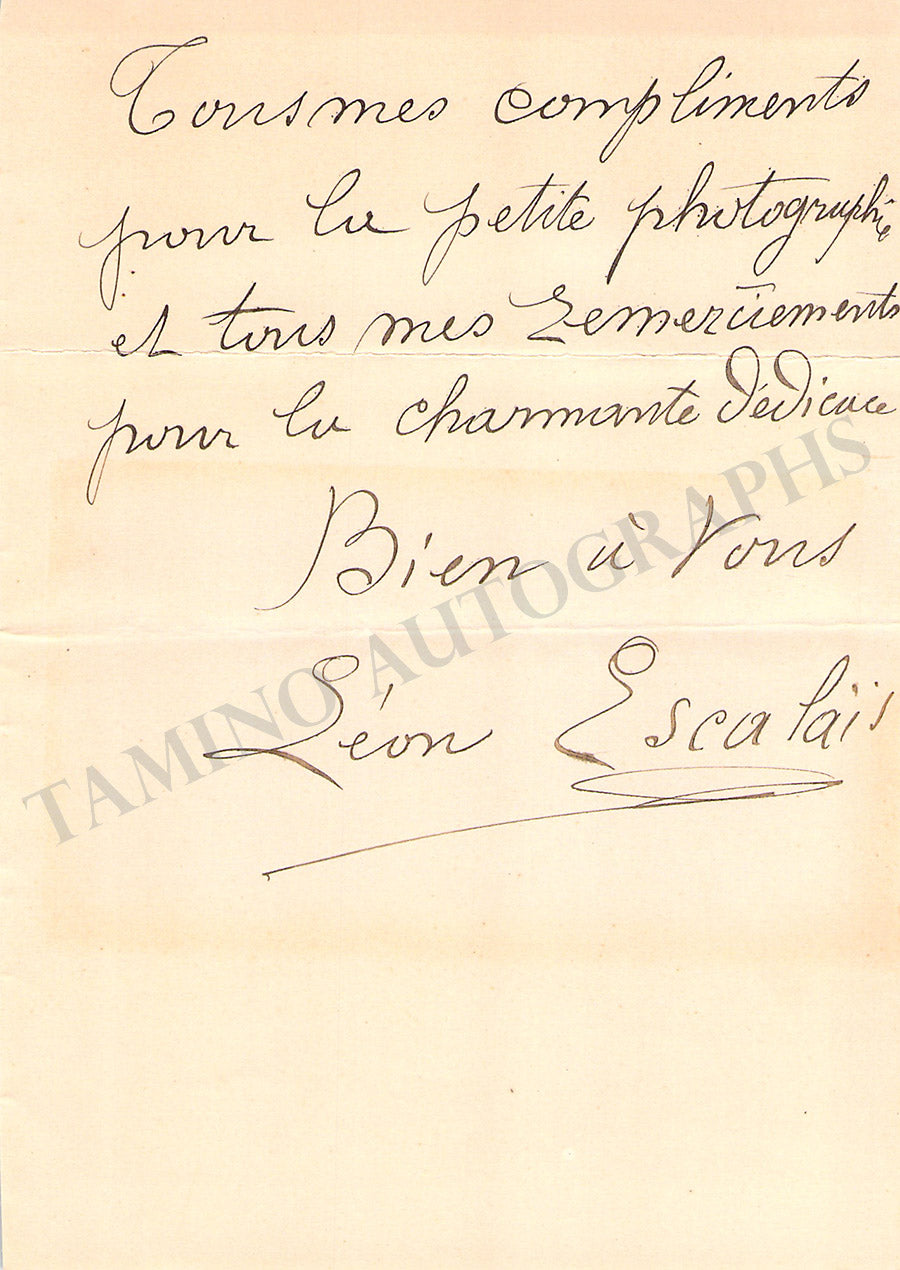 Tous mes compliments
pour la petite photographie
et tous mes remerciements
pour la charmante dédicace
Bien à Vous
Léon Escalaïs
TAMINO AUTOGRAPHS